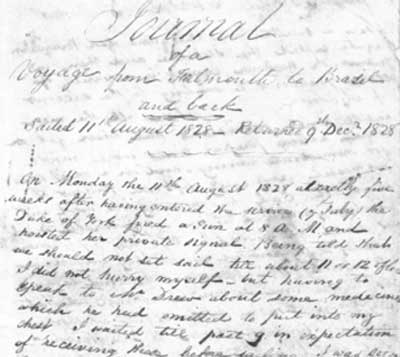 Journal
of a
Voyage from Falmouth to Brazil
and back
Sailed 11th August 1828 - Returned 9th Decr 1828
On Monday the 11th August 1828 at exactly five
weeks after having entered the service (7 July) the
Duke of York fired a Gun at 8 A.M and
hoisted her private signal. Being told that
we should not set sail till about 11 or 12 o'Clo
I did not hurry myself - but having to
speak to Mr Drew about some medecines
which he had omitted to put into my
chest I waited till past 9 in expectation
of receiving these before